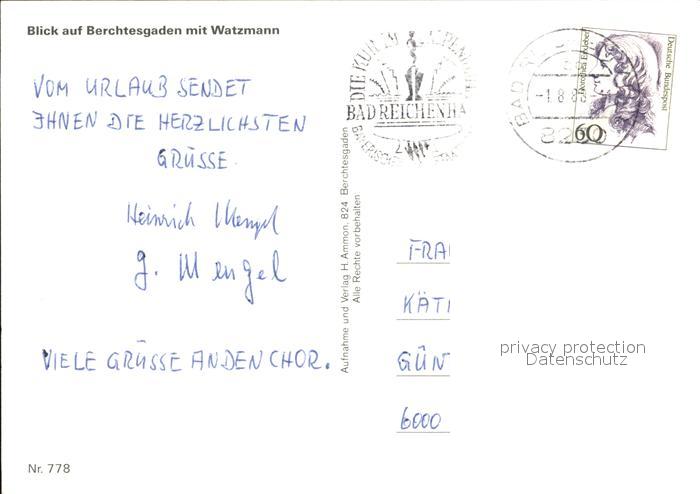 Blick auf Berchtesgaden mit Watzmann
VOM URLAUB SENDET
IHNEN DIE HERZLICHSTEN
GRÜSSE.
Heinrich Mengel
G. Mengel
VIELE GRÜSSE AN DEN CHOR.
Nr. 778
Aufnahme und Verlag H. Ammon, 824 Berchtesgaden
Alle Rechte vorbehalten
DIE KUR IM
BAD REICHENHA
BAD RE
-1.8.8
Deutsche Bundespost
Dorothea Erxleben
60
FRA
KÄT
GÜN
6000
privacy protection
Datenschutz